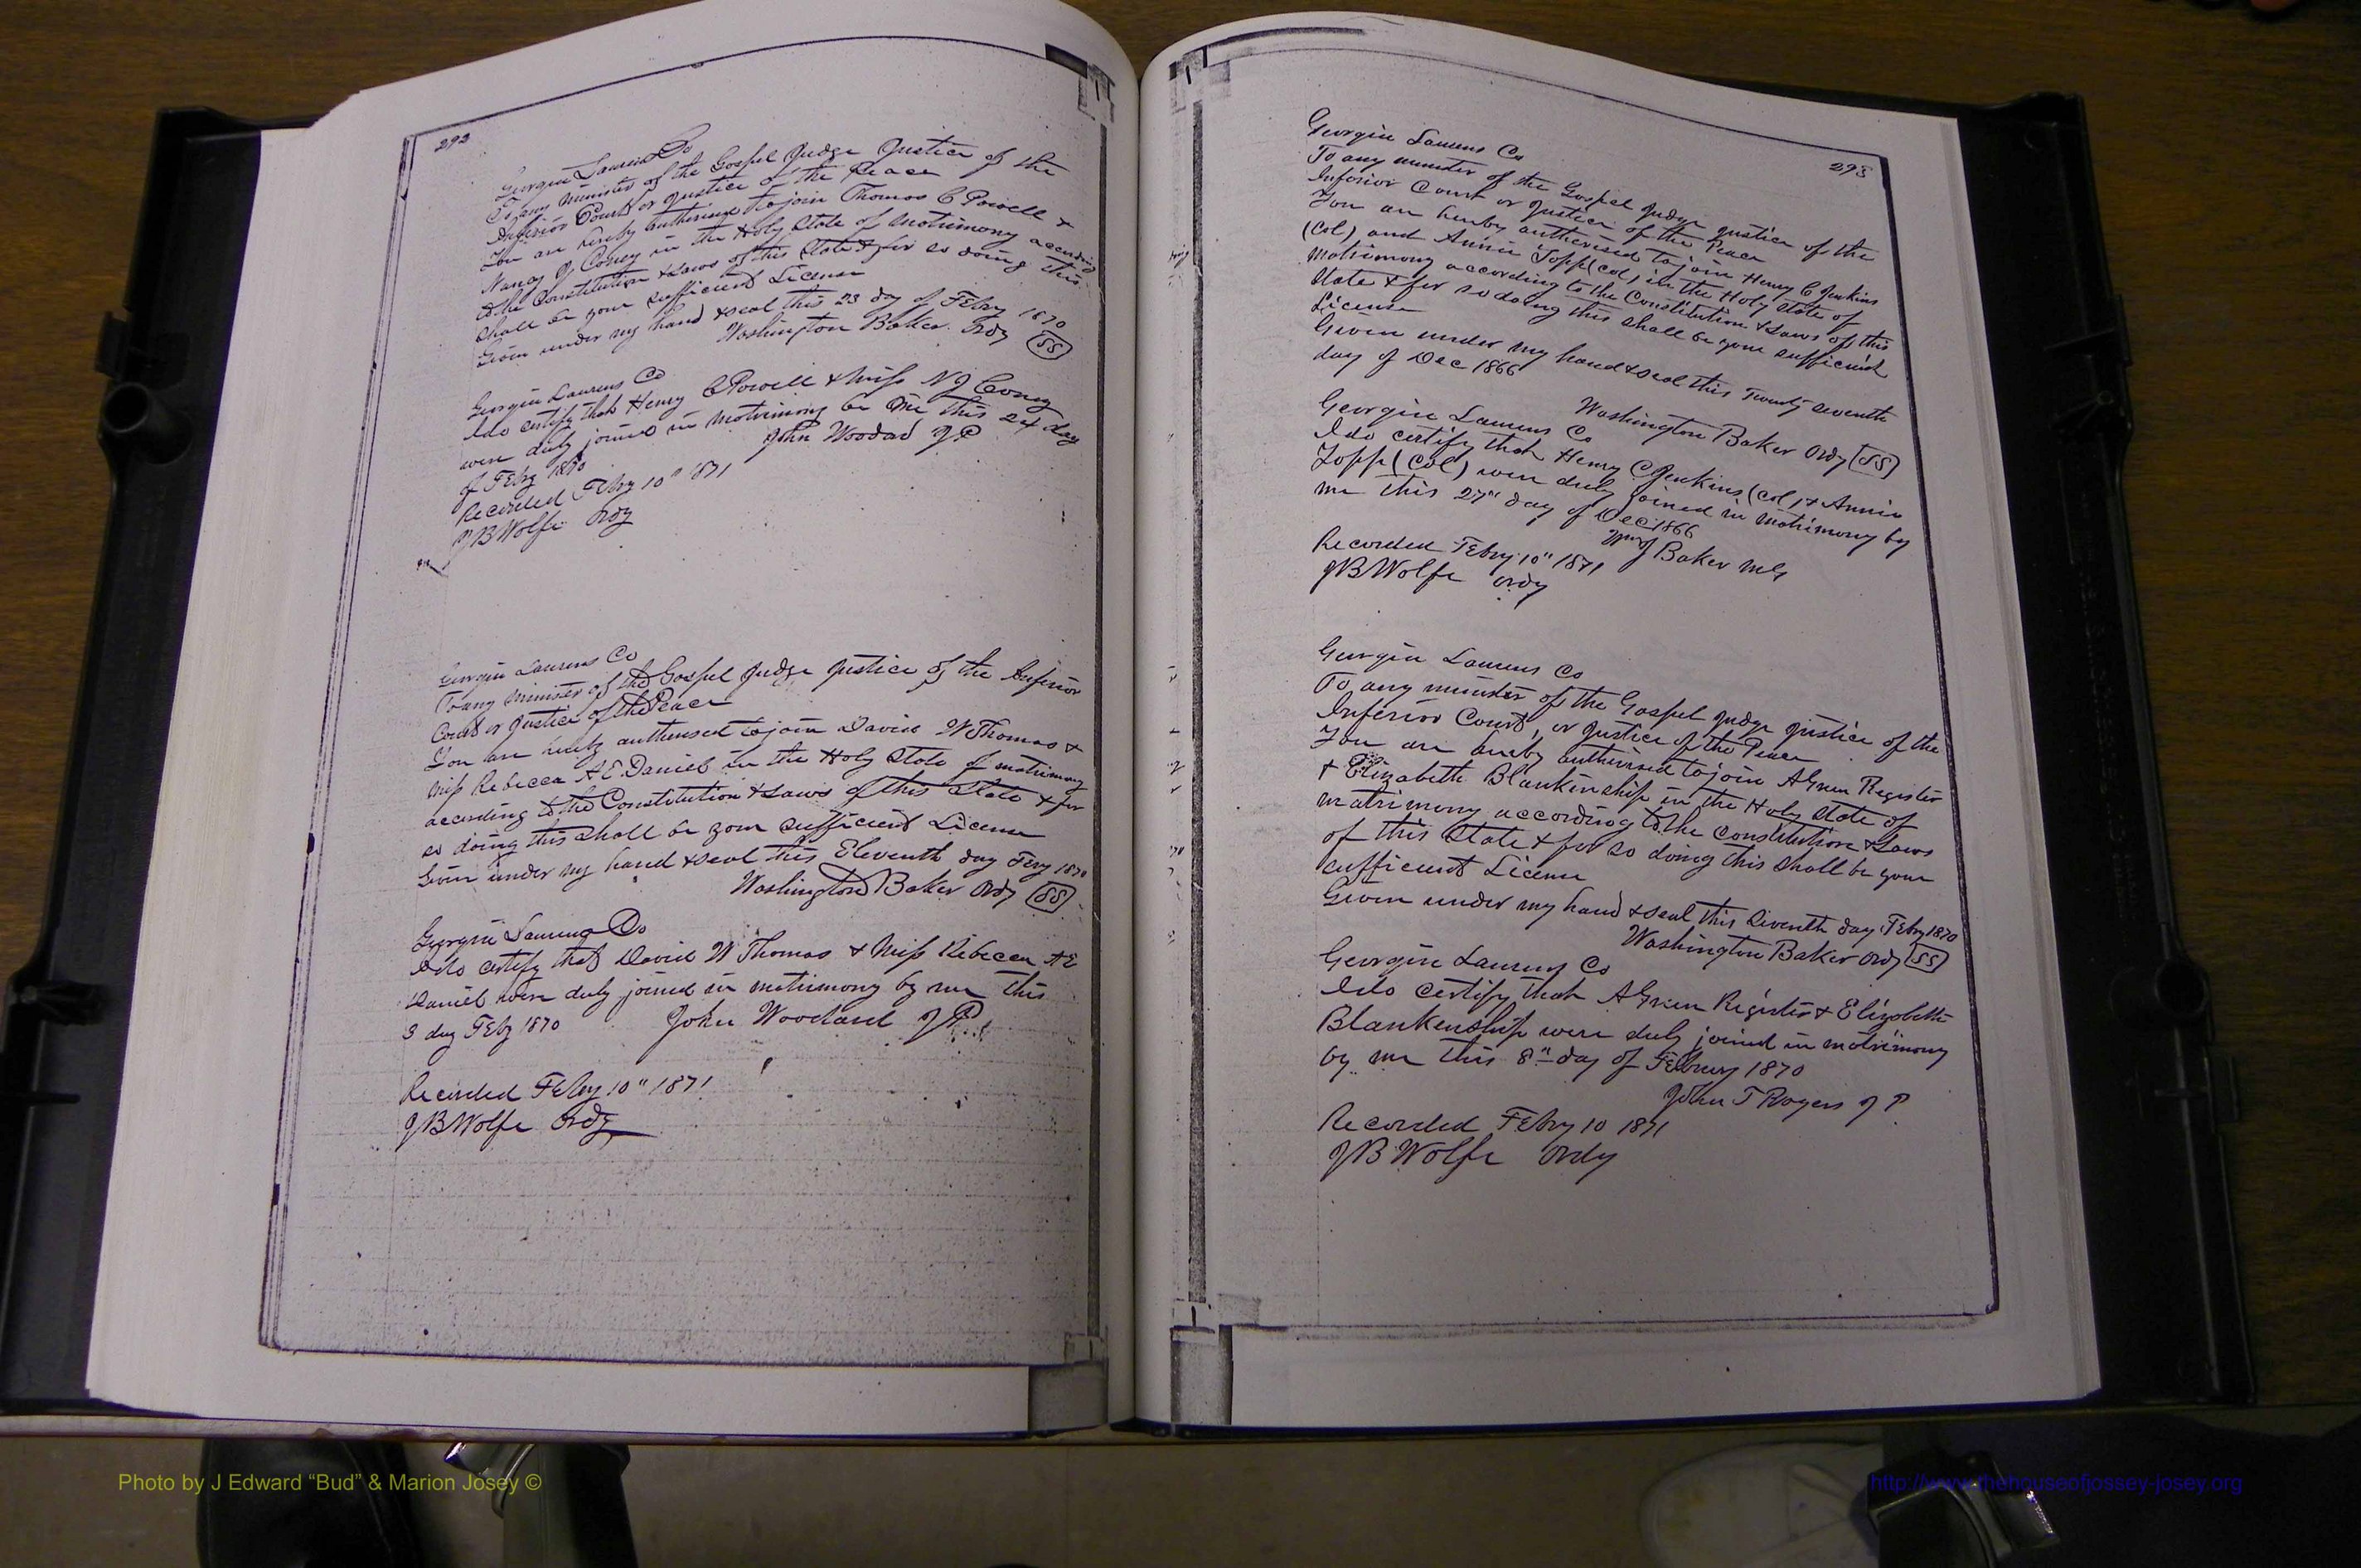 292
Georgia Laurens Co
To any Minister of the Gospel Judge Justice of the
Inferior Court or Justice of the Peace
You are hereby authorised to join Thomas C Powell &
Nancy J Coney in the Holy State of Matrimony according
to the Constitution & Laws of this State & for so doing this
shall be your sufficient License
Given under my hand & seal this 23 day of Febry 1870
Washington Baker Ordy SS
Georgia Laurens Co
I do certify that Henry C Powell & Miss N J Coney
were duly joined in matrimony be me this 24 day
of Febry 1870
John Woodard JP
Recorded Febry 10" 1871
JB Wolfe Ordy
Georgia Laurens Co
To any Minister of the Gospel Judge Justice of the Inferior
Court or Justice of the Peace
You are hereby authorised to join David W Thomas &
Miss Rebecca A E Daniel in the Holy State of matrimony
according to the Constitution & Laws of this State & for
so doing this shall be your sufficient License
Given under my hand & seal this Eleventh day Febry 1870
Washington Baker Ordy SS
Georgia Laurens Co
I do certify that David W Thomas & Miss Rebecca A E
Daniel were duly joined in matrimony by me this
3 day Feby 1870 John Woodard JP
Recorded Febry 10" 1871
JB Wolfe Ordy
293
Georgia Laurens Co
To any minister of the Gospel Judge Justice of the
Inferior Court or Justice of the Peace
You are hereby authorised to join Henry C Jenkins
(Col) and Annie Topp (Col) in the Holy State of
Matrimony according to the Constitution & Laws of this
State & for so doing this shall be your sufficient
License
Given under my hand & seal this Twenty seventh
day of Dec 1866
Washington Baker Ordy SS
Georgia Laurens Co
I do certify that Henry C Jenkins (Col) & Annie
Topp (Col) were duly joined in matrimony by
me this 27" day of Dec 1866
Wm J Baker MG
Recorded Febry 10" 1871
JB Wolfe Ordy
Georgia Laurens Co
To any minister of the Gospel Judge Justice of the
Inferior Court, or Justice of the Peace
You are hereby authorised to join A Green Register
& Elizabeth Blankenship in the Holy State of
matrimony according to the Constitution & Laws
of this State & for so doing this shall be your
sufficient License
Given under my hand & seal this Seventh day Febry 1870
Washington Baker Ordy SS
Georgia Laurens Co
I do certify that A Green Register & Elizabeth
Blankenship were duly joined in matrimony
by me this 8" day of Febrary 1870
John T Rogers JP
Recorded Febry 10 1871
JB Wolfe Ordy
Photo by J Edward “Bud” & Marion Josey ©
http://www.thehouseofjossey-josey.org